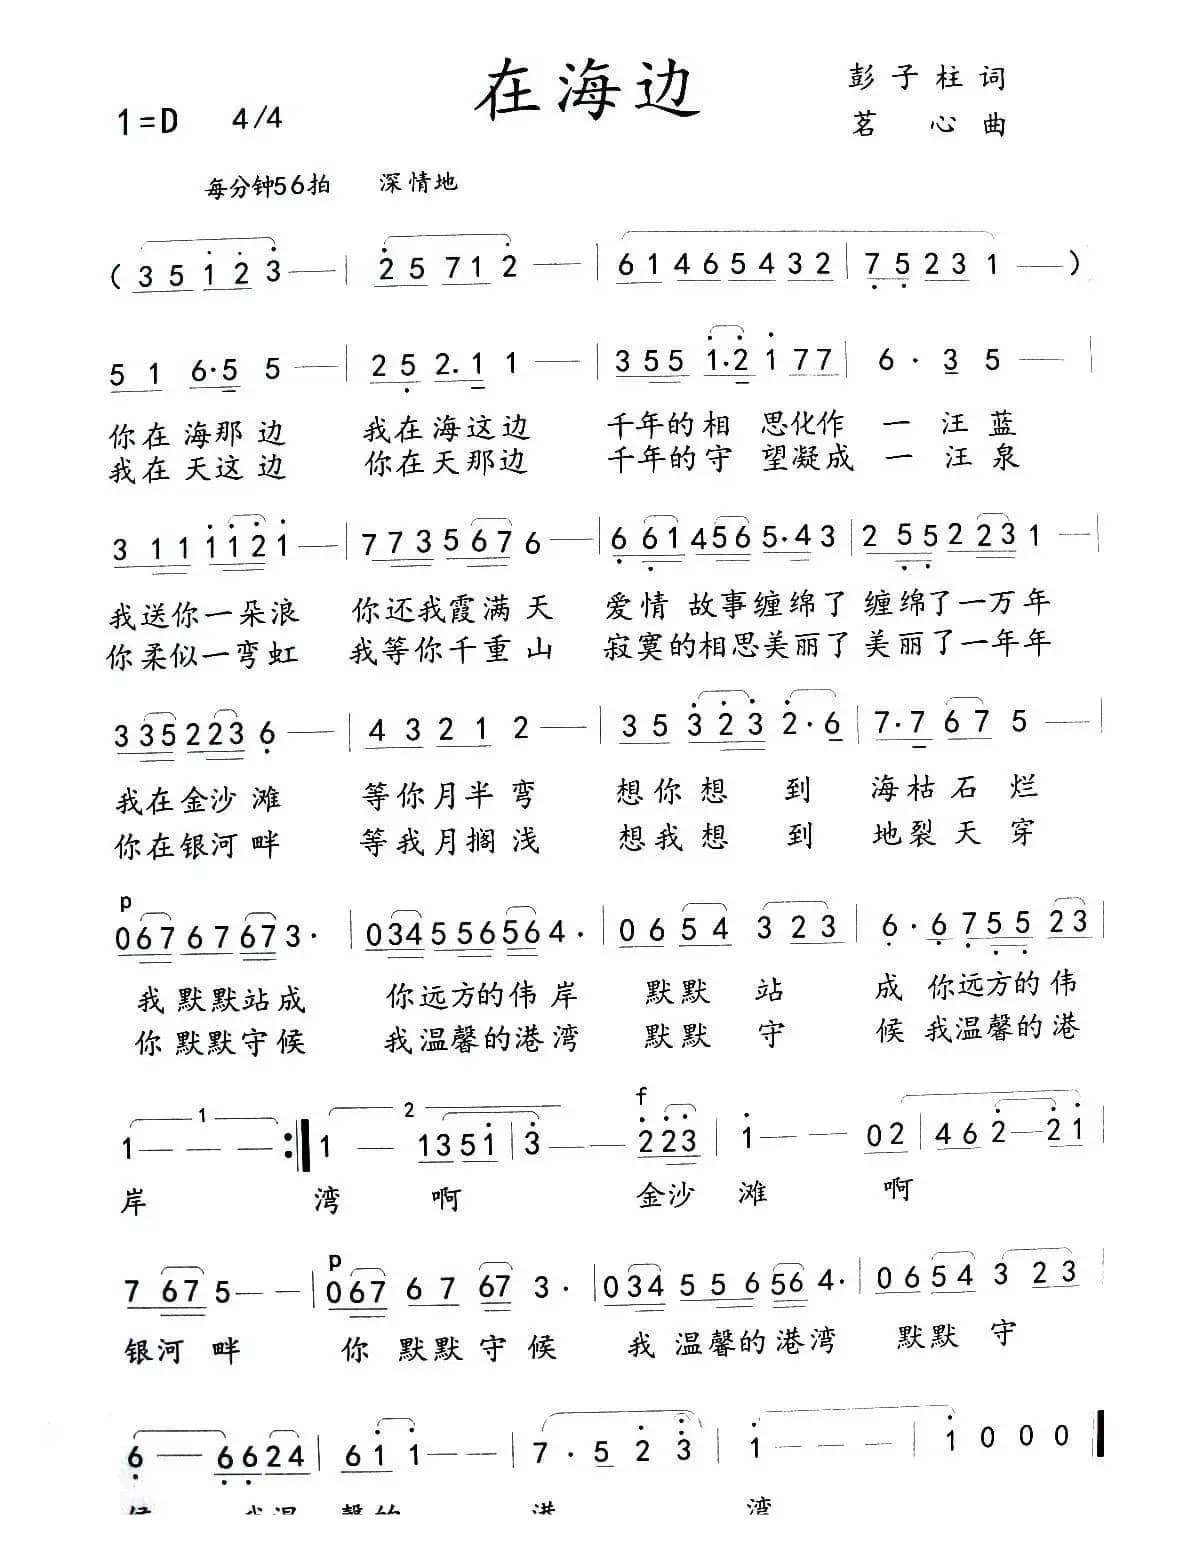 在海边
彭子柱 词
1=D 4/4
茗 心 曲
每分钟56拍 深情地
(3 5 1 2 3 —— | 2 5 7 1 2 —— | 6 1 4 6 5 4 3 2 | 7 5 2 3 1 —— )
5 1 6·5 5 —— | 2 5 2.1 1 —— | 3 5 5 1·2 1 7 7 | 6 · 3 5 —— |
你在海那边 我在海这边 千年的相 思化作 一 汪 蓝
我在天这边 你在天那边 千年的守 望凝成 一 汪 泉
3 1 1 1 1 2 1 —— | 7 7 3 5 6 7 6 —— | 6 6 1 4 5 6 5·4 3 | 2 5 5 2 2 3 1 —— |
我送你一朵浪 你还我霞满天 爱情 故事缠绵了 缠绵了一万年
你柔似一弯虹 我等你千重山 寂寞的相思美丽了 美丽了一年年
3 3 5 2 2 3 6 —— | 4 3 2 1 2 —— | 3 5 3 2 3 2·6 | 7·7 6 7 5 —— |
我在金沙滩 等你月半弯 想你想 到 海枯石烂
你在银河畔 等我月搁浅 想我想 到 地裂天穿
p
0 6 7 6 7 6 7 3· | 0 3 4 5 5 6 5 6 4· | 0 6 5 4 3 2 3 | 6·6 7 5 5 2 3 |
我默默站成 你远方的伟岸 默默 站 成 你远方的伟
你默默守候 我温馨的港湾 默默 守 候 我温馨的港
1 2 f
1 — — — :‖ 1 — 1 3 5 1 | 3 —— 2 2 3 | 1 —— 0 2 | 4 6 2 — 2 1 |
岸 湾 啊 金沙 滩 啊
p
7 6 7 5 —— | 0 6 7 6 7 6 7 3· | 0 3 4 5 5 6 5 6 4· | 0 6 5 4 3 2 3
银河 畔 你 默默守候 我 温馨的港湾 默默 守
6 — 6 6 2 4 | 6 1 1 —— | 7 · 5 2 3 | 1 — — — | 1 0 0 0 ‖
候 我温 馨的 港 湾